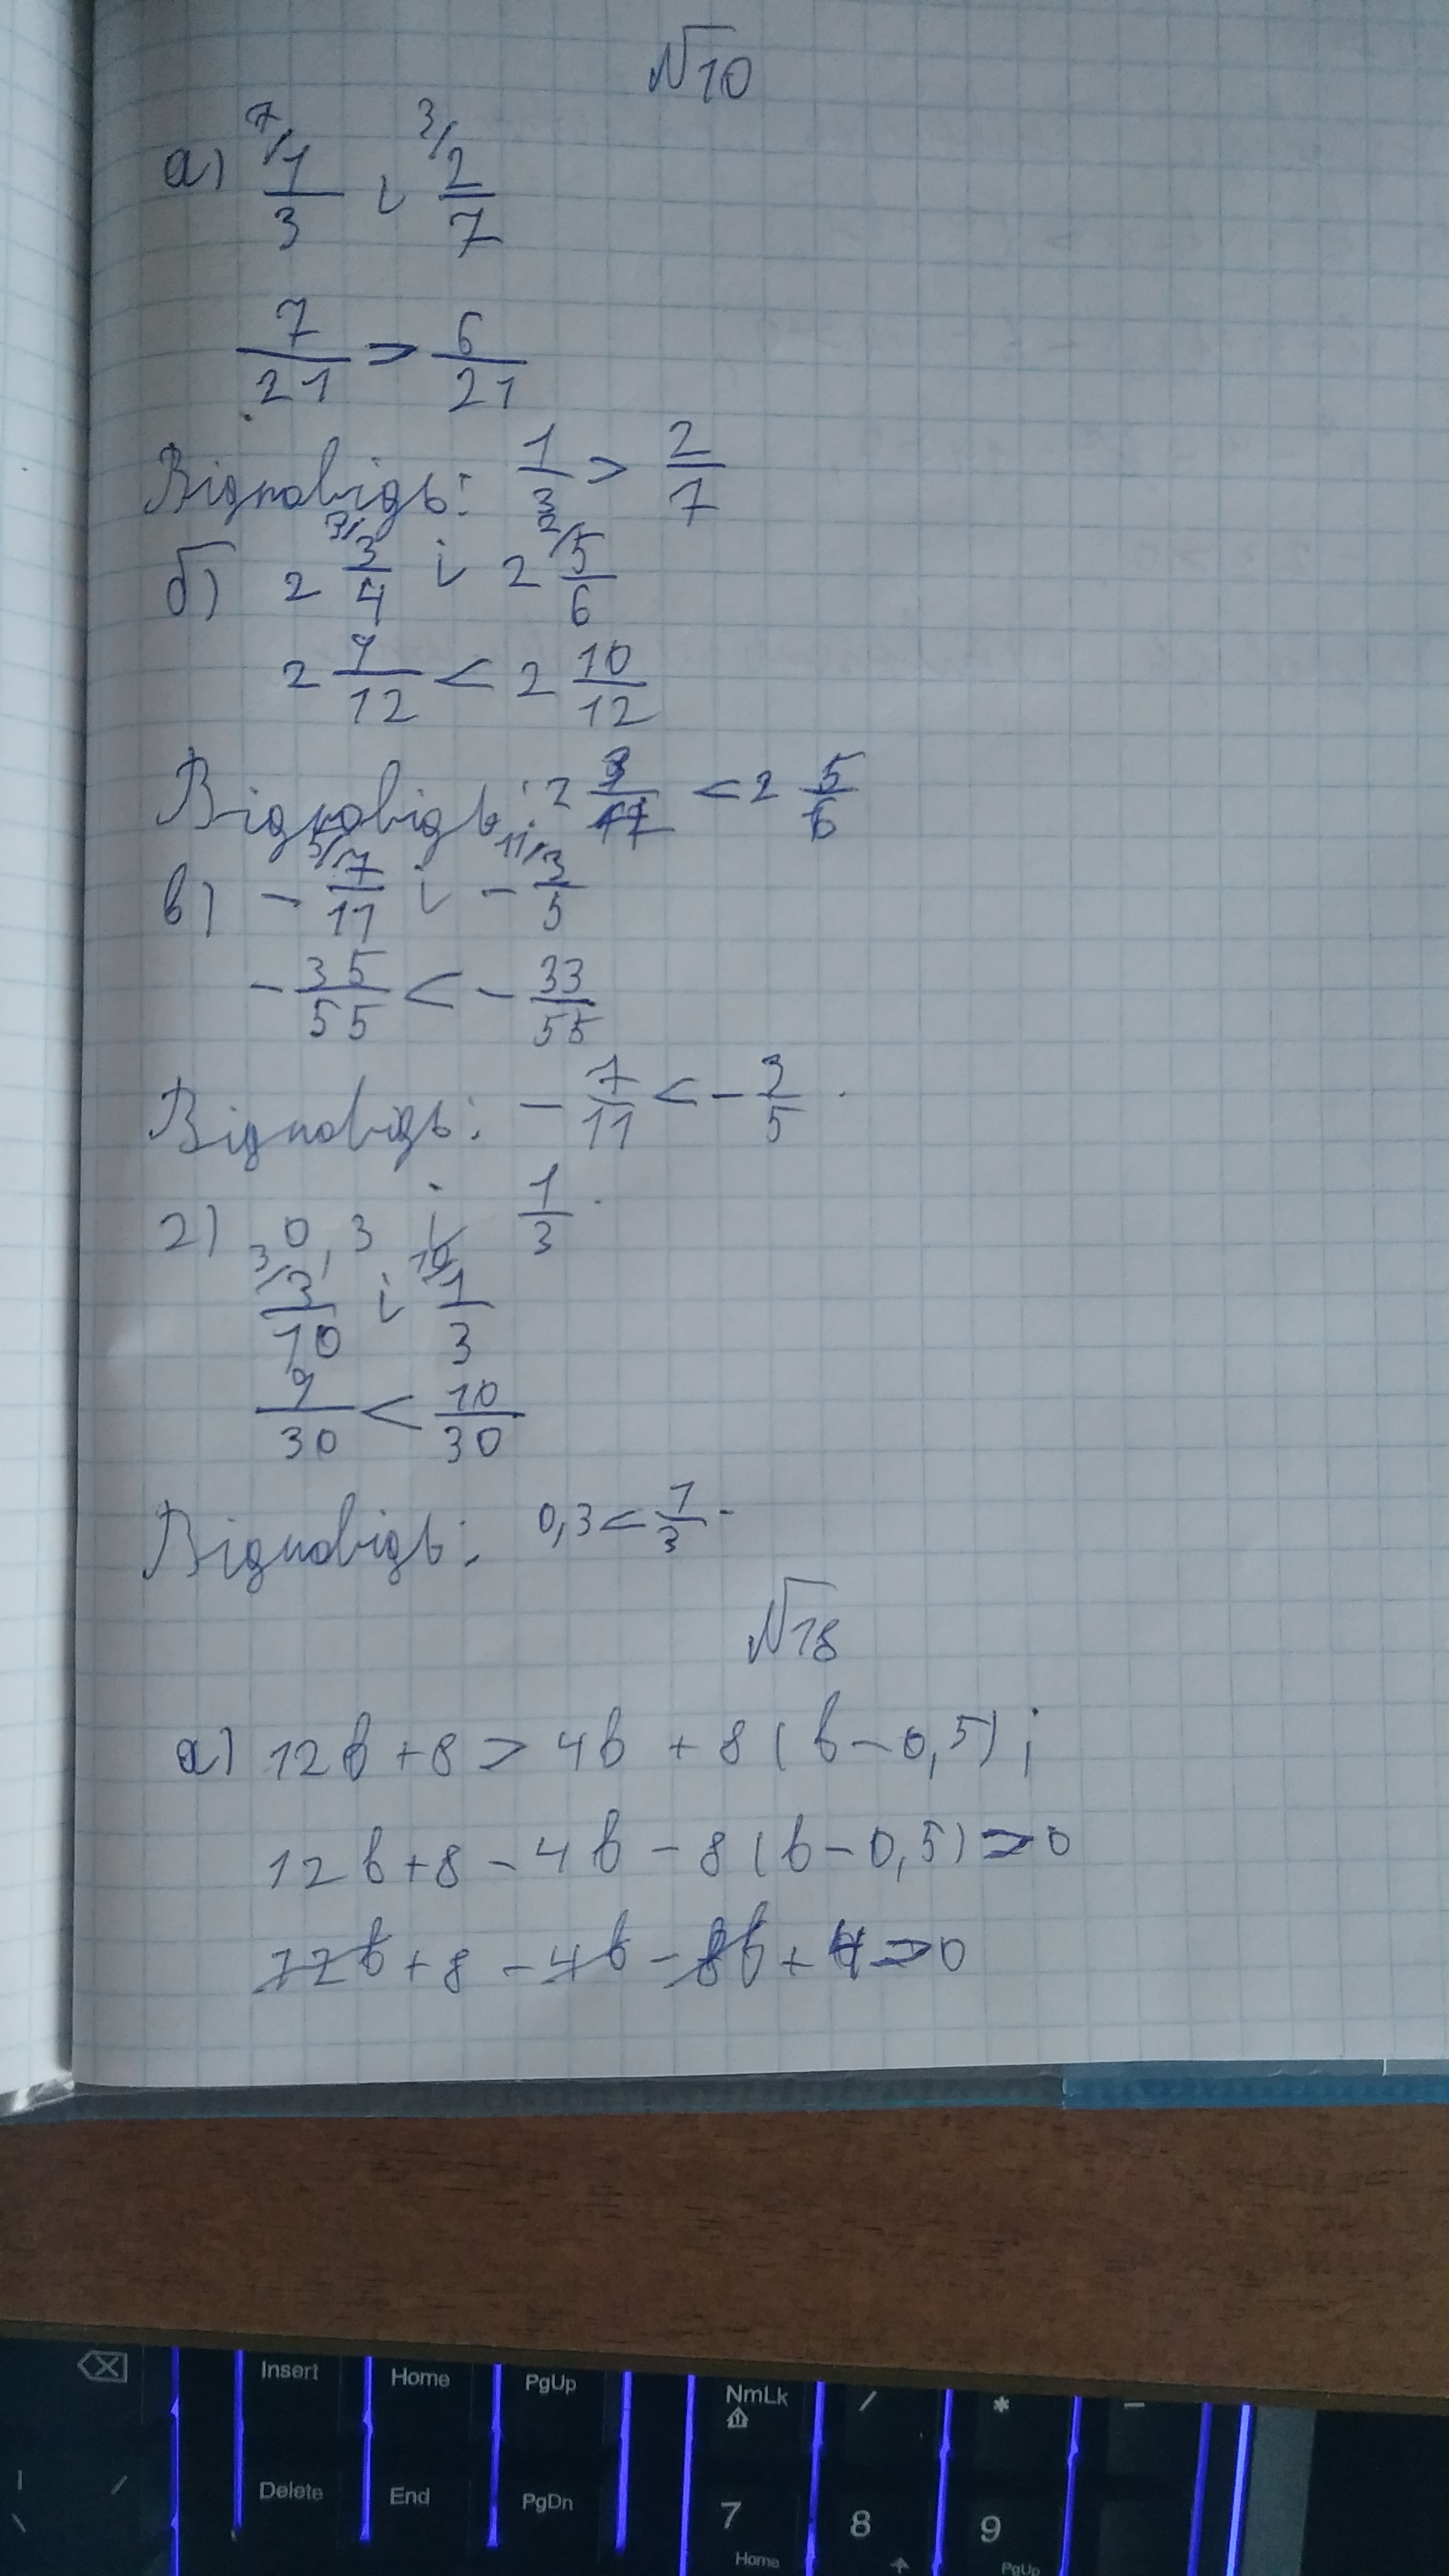 №10
а) 7/ 1/3 і 3/ 2/7
7/21 > 6/21
Відповідь: 1/3 > 2/7
б) 2 3/ 3/4 і 2 2/ 5/6
2 9/12 < 2 10/12
Відповідь: 2 < 2 5/6
в) - 5/ 7/11 і - 11/ 3/5
- 35/55 < - 33/55
Відповідь: - 7/11 < - 3/5.
г) 0,3 і 1/3.
3/ 3/10 і 10/ 1/3
9/30 < 10/30
Відповідь: 0,3 < 1/3.
№18
а) 12b + 8 > 4b + 8(b - 0,5);
12b + 8 - 4b - 8(b - 0,5) > 0
12b + 8 - 4b - 8b + 4 > 0
Insert Home PgUp NmLk / * -
Delete End PgDn 7 8 9
Home PgUp